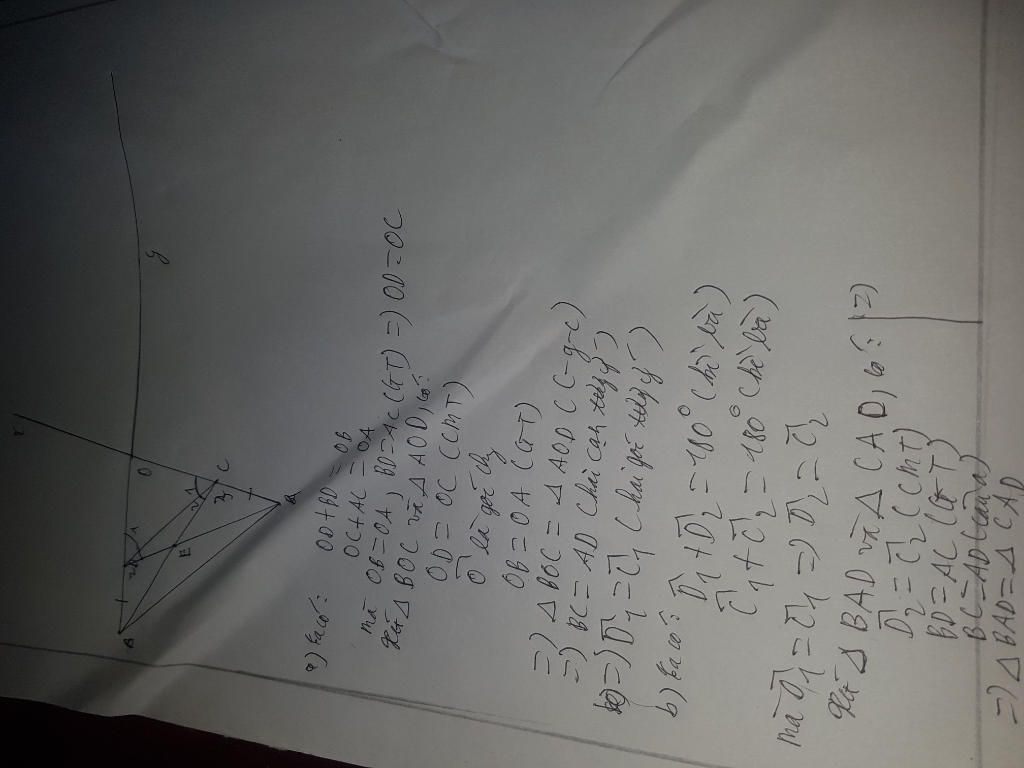 x
y
B
D
O
C
A
E
1
2
1
2
a) ta có: OD + BD = OB
OC + AC = OA
mà OB = OA, BD = AC (GT) => OD = OC
Xét Δ BOC và Δ AOD, có:
OD = OC (CMT)
Ô là góc chg
OB = OA (GT)
=> Δ BOC = Δ AOD (C-g-c)
=> BC = AD (hai cạnh
=> D̂1 = Ĉ1 (hai góc
b) ta có: D̂1 + D̂2 = 180° (kề bù)
Ĉ1 + Ĉ2 = 180° (kề bù)
mà D̂1 = Ĉ1 => D̂2 = Ĉ2
Xét Δ BAD và Δ CAD, có: =>
D̂2 = Ĉ2 (CMT)
BD = AC (GT)
BC = AD (câu a)
=> Δ BAD = Δ CAD